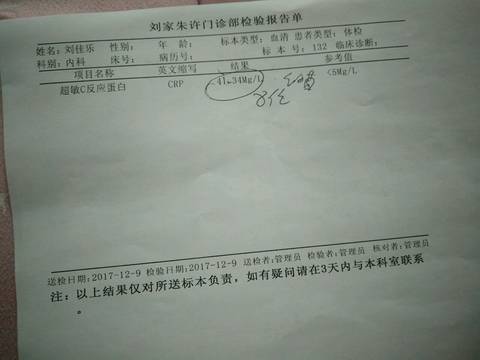 刘家朱许门诊部检验报告单
姓名：刘佳乐 性别： 年 龄： 标本类型：血清 患者类型：体检
科别：内科 床号： 病历号： 标 本 号：132 临床诊断：
项目名称 英文缩写 结果 参考值
超敏C反应蛋白 CRP 41.34Mg/L <5Mg/L
送检日期：2017-12-9 检验日期：2017-12-9 送检者：管理员 检验者：管理员 核对者：管理员
注：以上结果仅对所送标本负责，如有疑问请在3天内与本科室联系
。